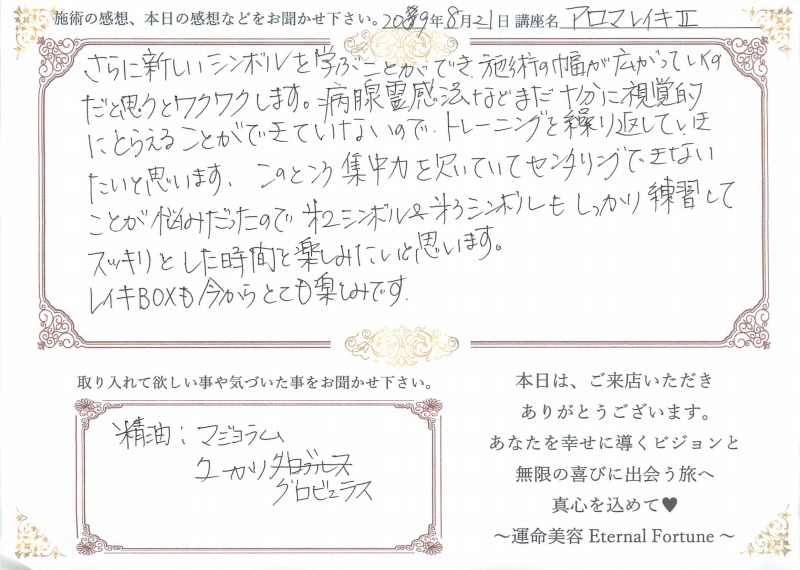 施術の感想、本日の感想などをお聞かせ下さい。2019年8月21日 講座名 アロマレイキⅡ
さらに新しいシンボルを学ぶことができ、施術の幅が広がっていくの
だと思うとワクワクします。病腺霊感法などまだ十分に視覚的
にとらえることができていけないので、トレーニングを繰り返していき
たいと思います。このところ集中力を欠いていてセンタリングできない
ことが悩みだったので第2シンボル、第3シンボルもしっかり練習して
スッキリとした時間を楽しみたいと思います。
レイキBOXも今からとても楽しみです。
取り入れて欲しい事や気づいた事をお聞かせ下さい。
精油：マジョラム
ユーカリ
グロビュラス
本日は、ご来店いただき
ありがとうございます。
あなたを幸せに導くビジョンと
無限の喜びに出会う旅へ
真心を込めて♥
～運命美容 Eternal Fortune～